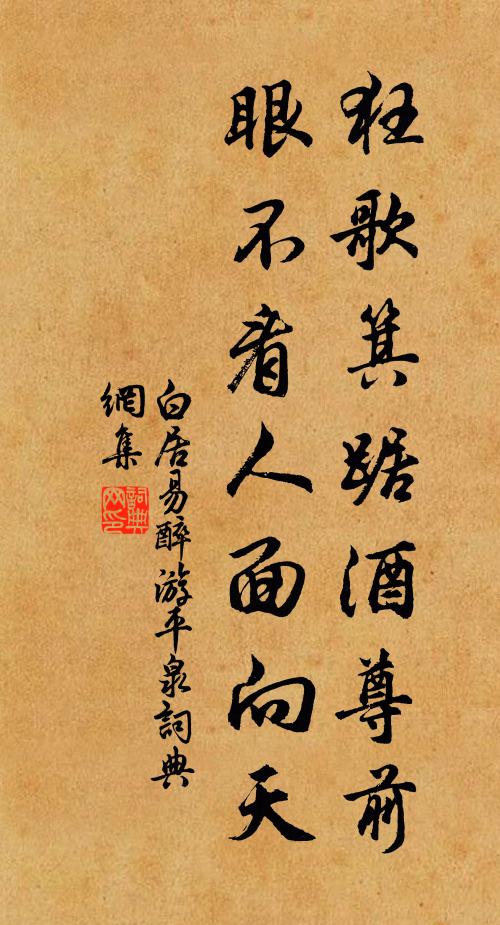 狂歌箕踞酒尊前
眼不看人面向天
白居易醉游平泉詞典
網集
詞典
网印